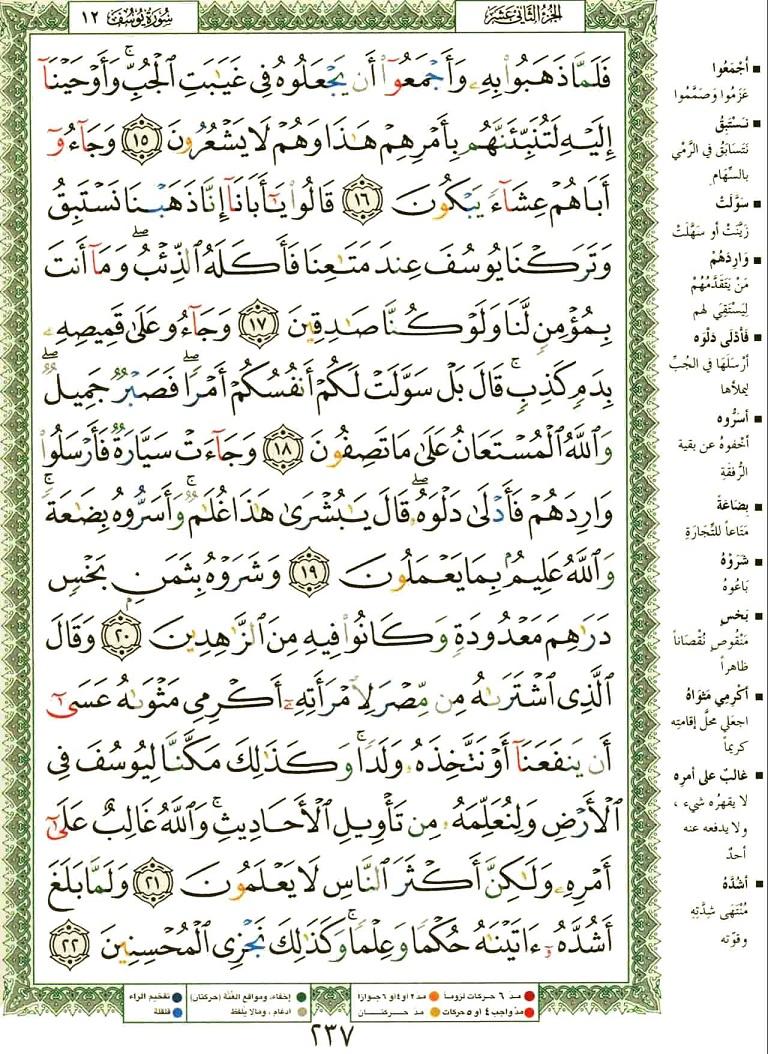 سُورَةُ يُوسُفَ ١٢
الجُزءُ الثَّانِي عَشَرَ
فَلَمَّا ذَهَبُوا۟ بِهِۦ وَأَجْمَعُوٓا۟ أَن يَجْعَلُوهُ فِى غَيَـٰبَتِ ٱلْجُبِّ ۚ وَأَوْحَيْنَآ
إِلَيْهِ لَتُنَبِّئَنَّهُم بِأَمْرِهِمْ هَـٰذَا وَهُمْ لَا يَشْعُرُونَ ١٥ وَجَآءُوٓ
أَبَاهُمْ عِشَآءً يَبْكُونَ ١٦ قَالُوا۟ يَـٰٓأَبَانَآ إِنَّا ذَهَبْنَا نَسْتَبِقُ
وَتَرَكْنَا يُوسُفَ عِندَ مَتَـٰعِنَا فَأَكَلَهُ ٱلذِّئْبُ ۖ وَمَآ أَنتَ
بِمُؤْمِنٍ لَّنَا وَلَوْ كُنَّا صَـٰدِقِينَ ١٧ وَجَآءُو عَلَىٰ قَمِيصِهِۦ
بِدَمٍ كَذِبٍ ۚ قَالَ بَلْ سَوَّلَتْ لَكُمْ أَنفُسُكُمْ أَمْرًا ۖ فَصَبْرٌ جَمِيلٌ ۖ
وَٱللَّهُ ٱلْمُسْتَعَانُ عَلَىٰ مَا تَصِفُونَ ١٨ وَجَآءَتْ سَيَّارَةٌ فَأَرْسَلُوا۟
وَارِدَهُمْ فَأَدْلَىٰ دَلْوَهُۥ ۖ قَالَ يَـٰبُشْرَىٰ هَـٰذَا غُلَـٰمٌ ۚ وَأَسَرُّوهُ بِضَـٰعَةً ۚ
وَٱللَّهُ عَلِيمٌۢ بِمَا يَعْمَلُونَ ١٩ وَشَرَوْهُ بِثَمَنٍۭ بَخْسٍ
دَرَٰهِمَ مَعْدُودَةٍ وَكَانُوا۟ فِيهِ مِنَ ٱلزَّٰهِدِينَ ٢٠ وَقَالَ
ٱلَّذِى ٱشْتَرَىٰهُ مِن مِّصْرَ لِٱمْرَأَتِهِۦٓ أَكْرِمِى مَثْوَىٰهُ عَسَىٰٓ
أَن يَنفَعَنَآ أَوْ نَتَّخِذَهُۥ وَلَدًا ۚ وَكَذَٰلِكَ مَكَّنَّا لِيُوسُفَ فِى
ٱلْأَرْضِ وَلِنُعَلِّمَهُۥ مِن تَأْوِيلِ ٱلْأَحَادِيثِ ۚ وَٱللَّهُ غَالِبٌ عَلَىٰٓ
أَمْرِهِۦ وَلَـٰكِنَّ أَكْثَرَ ٱلنَّاسِ لَا يَعْلَمُونَ ٢١ وَلَمَّا بَلَغَ
أَشُدَّهُۥٓ ءَاتَيْنَـٰهُ حُكْمًا وَعِلْمًا ۚ وَكَذَٰلِكَ نَجْزِى ٱلْمُحْسِنِينَ ٢٢
■ أجْمَعُوا
عَزَمُوا وَصَمَّمُوا
■ نَسْتَبِقُ
نَتَسَابَقُ فِي الرَّمْيِ
بالسِّهَامِ
■ سَوَّلَتْ
زَيَّنَتْ أو سَهَّلَتْ
■ وَارِدَهُمْ
مَنْ يَتَقَدَّمُهُمْ
لِيَسْتَقِيَ لهم
■ فَأَدْلَى دَلْوَه
أرْسَلَهَا فِي الجُبِّ
لِيملأها
■ أسَرُّوه
أخْفَوهُ عن بقية
الرُّفقَةِ
■ بِضَاعَةً
مَتَاعاً للتِّجَارَةِ
■ شَرَوْهُ
بَاعُوهُ
■ بَخْسٍ
مَنْقُوصٍ نُقْصَاناً
ظاهراً
■ أكْرِمِي مَثْوَاهُ
اجعَلِي محلَّ إقامتِه
كريماً
■ غالبٌ على أمرِه
لا يقهرُه شيء ،
ولا يدفعه عنه
أحدٌ
■ أشُدَّهُ
مُنْتَهَى شِدَّتِهِ
وقوّته
مد ٦ حركات لزوماً
مد ٢ أو ٤ أو ٦ جوازاً
إخفاء، ومواقع الغُنَّة (حركتان)
تفخيم الراء
مد واجب ٤ أو ٥ حركات
مد حركتان
ادغام، ومالا يلفظ
قلقلة
٢٣٧